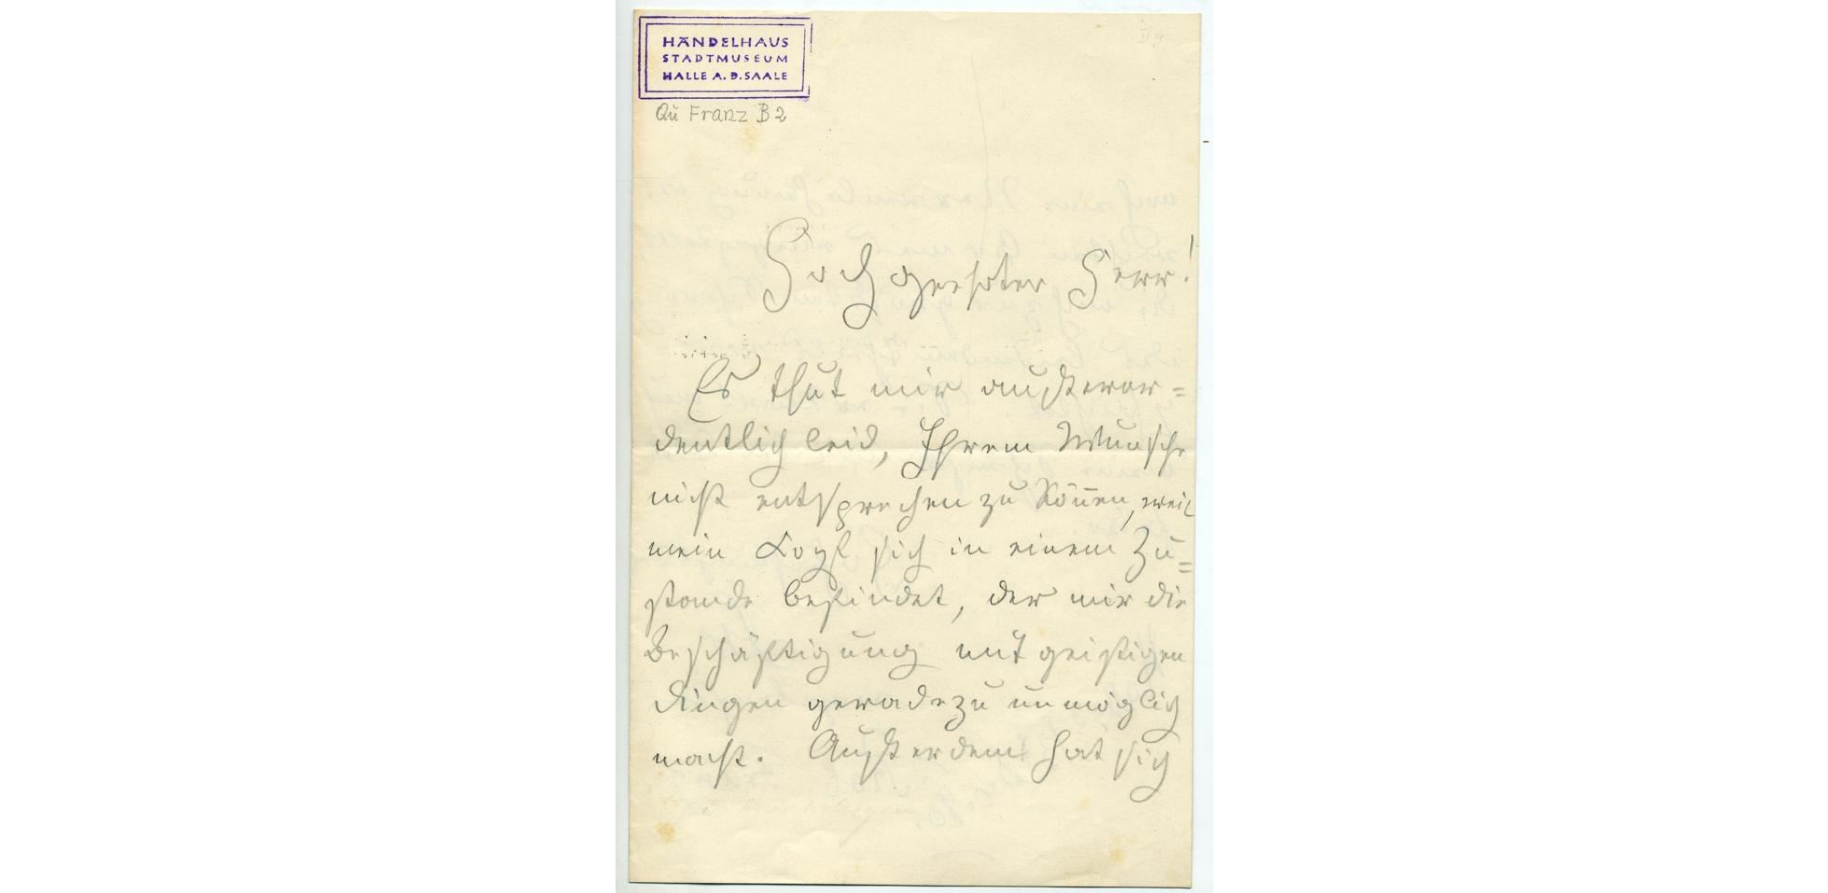 HÄNDELHAUS
STADTMUSEUM
HALLE A. D. SAALE
Qu Franz B 2
Hochgeehrter Herr!
Es thut mir außeror=
dentlich leid, Ihrem Wunsche
nicht entsprechen zu kön̄en, weil
mein Kopf sich in einem Zu=
stande befindet, der mir die
Beschäftigung mit geistigen
Dingen geradezu unmöglich
macht. Außerdem hat sich